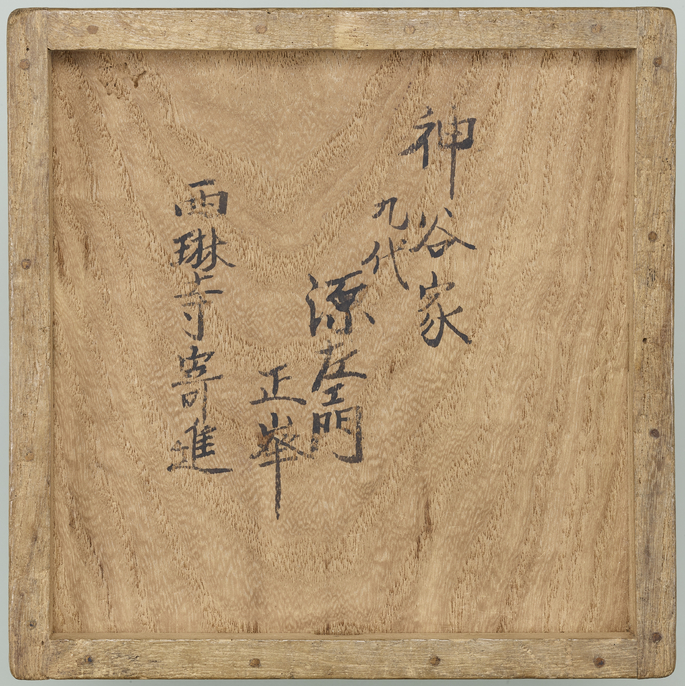 神谷家
九代
源左門
正峯
西琳寺寄進